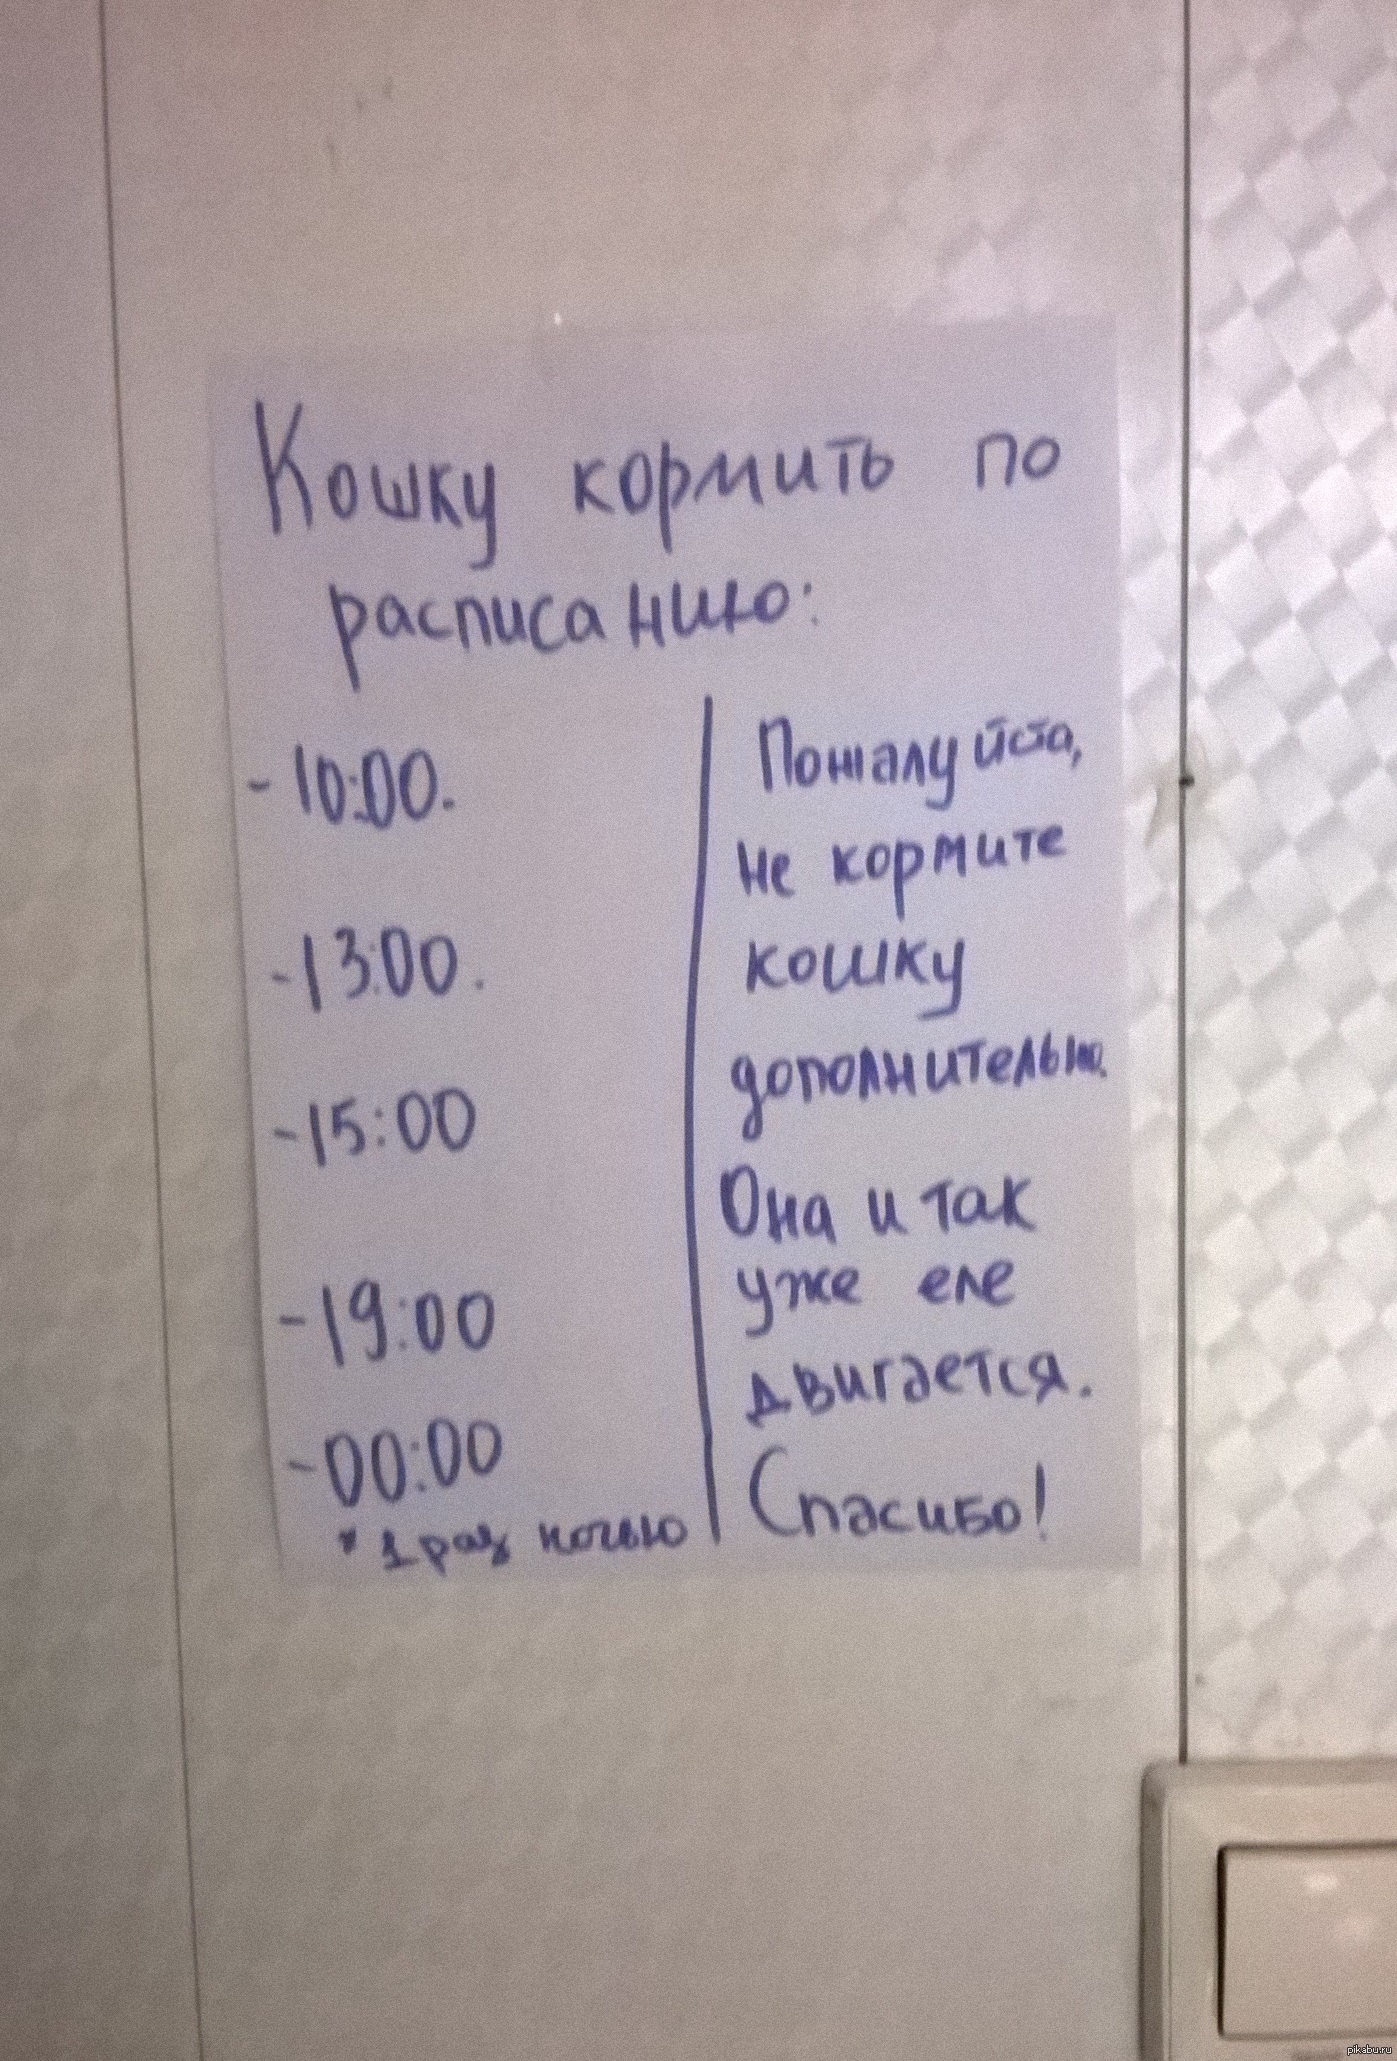 Кошку кормить по
расписанию:
- 10:00.
- 13:00.
- 15:00
- 19:00
- 00:00
* 1 раз ночью
Пожалуйста,
не кормите
кошку
дополнительно.
Она и так
уже еле
двигается.
Спасибо!
pikabu.ru